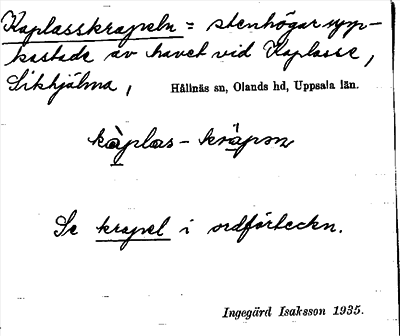 Kaplasskrapeln = stenhögar upp-
kastade av havet vid Kaplasse,
Sikhjälma, Hållnäs sn, Olands hd, Uppsala län.
kàplas - kräpən
Se krapel i ordförteckn.
Ingegärd Isaksson 1935.